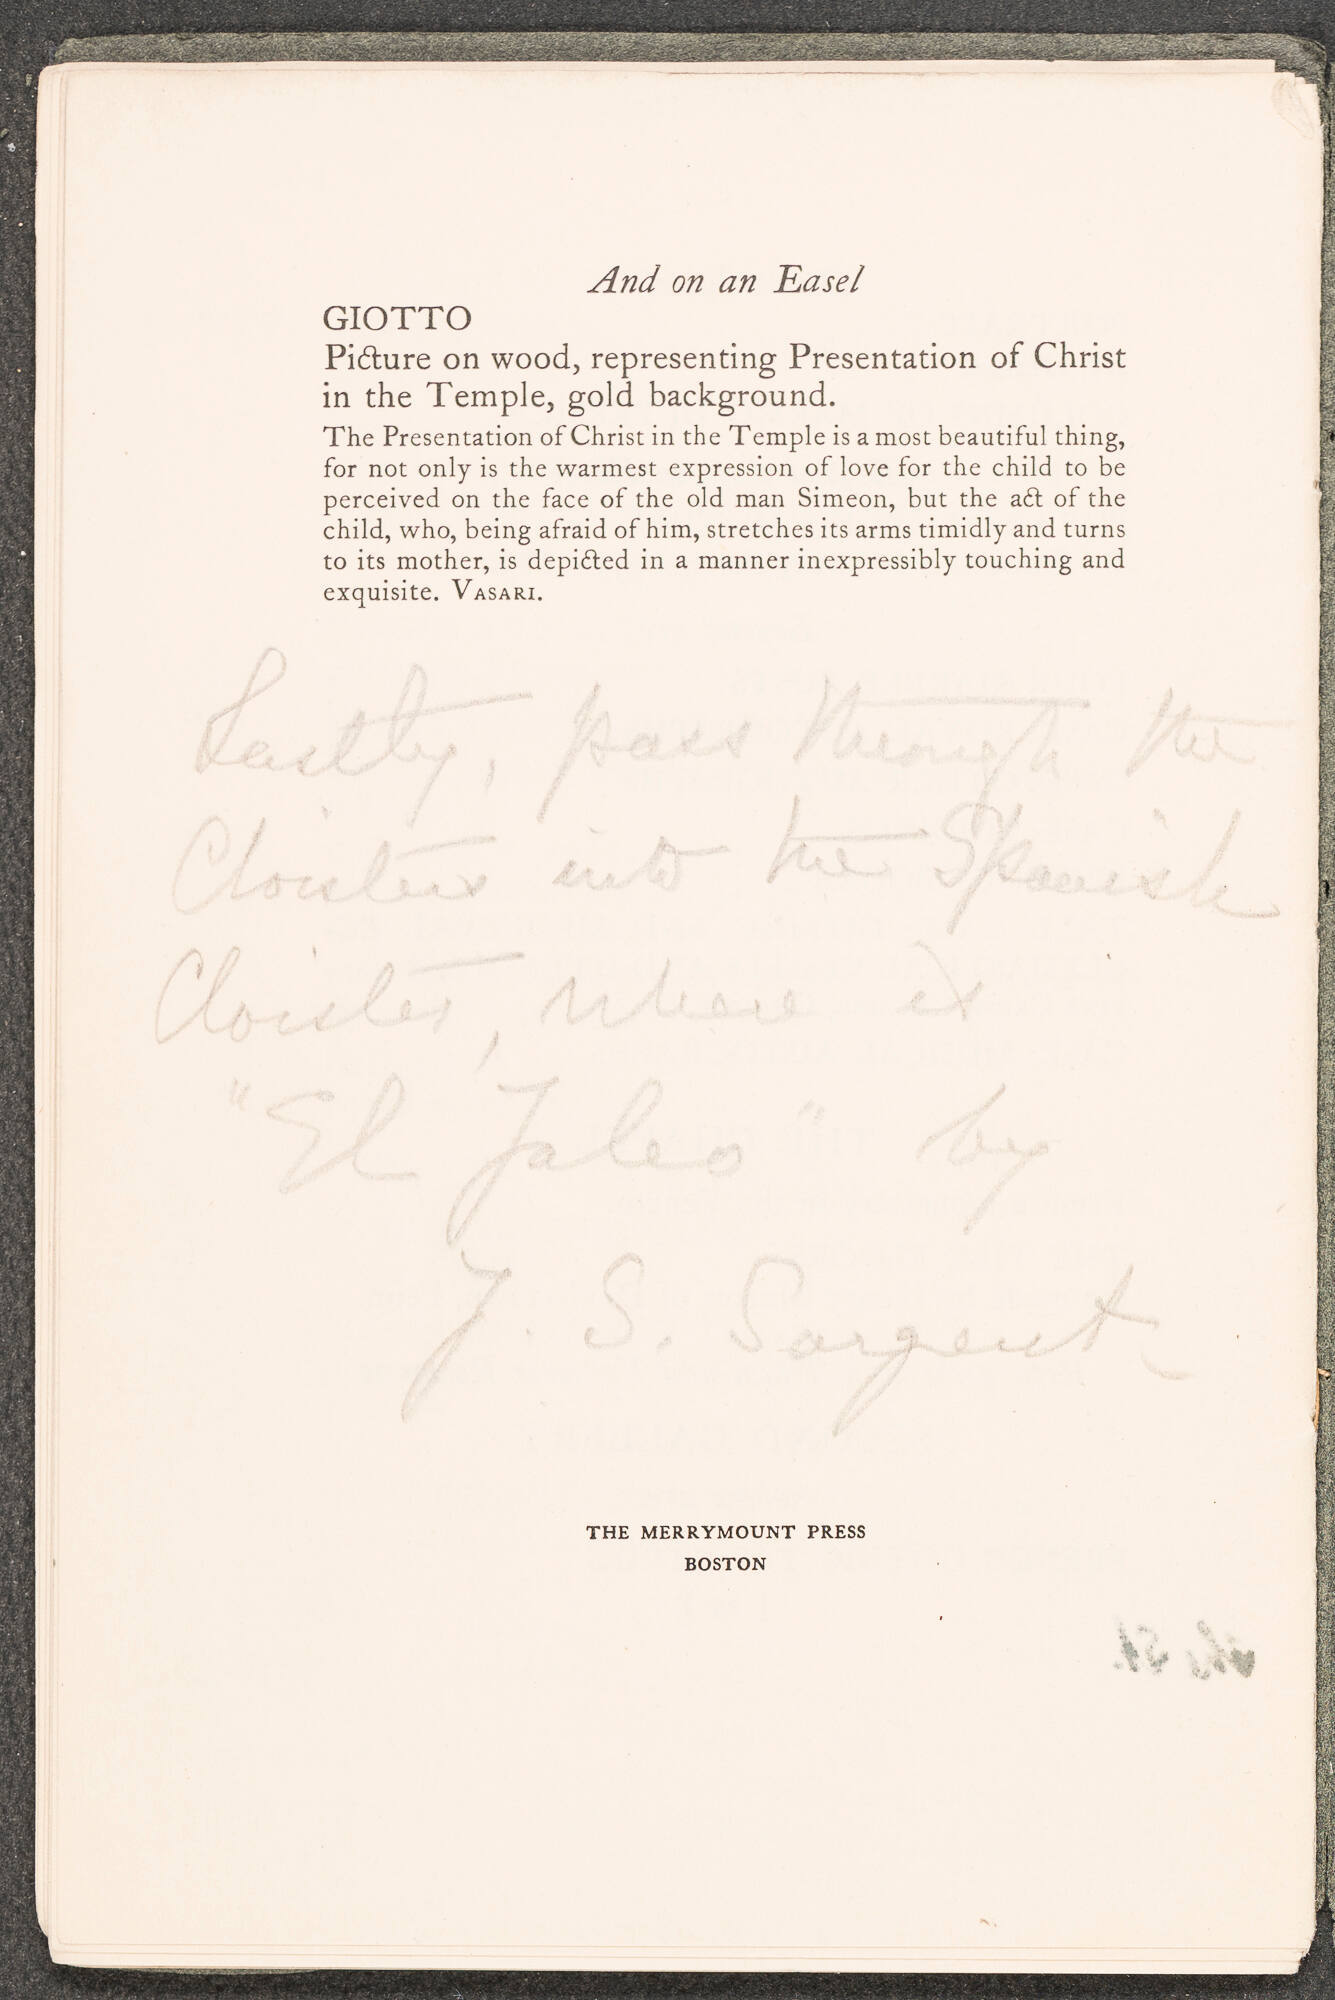 And on an Easel
GIOTTO
Picture on wood, representing Presentation of Christ
in the Temple, gold background.
The Presentation of Christ in the Temple is a most beautiful thing,
for not only is the warmest expression of love for the child to be
perceived on the face of the old man Simeon, but the act of the
child, who, being afraid of him, stretches its arms timidly and turns
to its mother, is depicted in a manner inexpressibly touching and
exquisite. VASARI.
Lastly, pass through the
Cloisters into the Spanish
Cloister, where is
"El Jaleo" by
J. S. Sargent
THE MERRYMOUNT PRESS
BOSTON